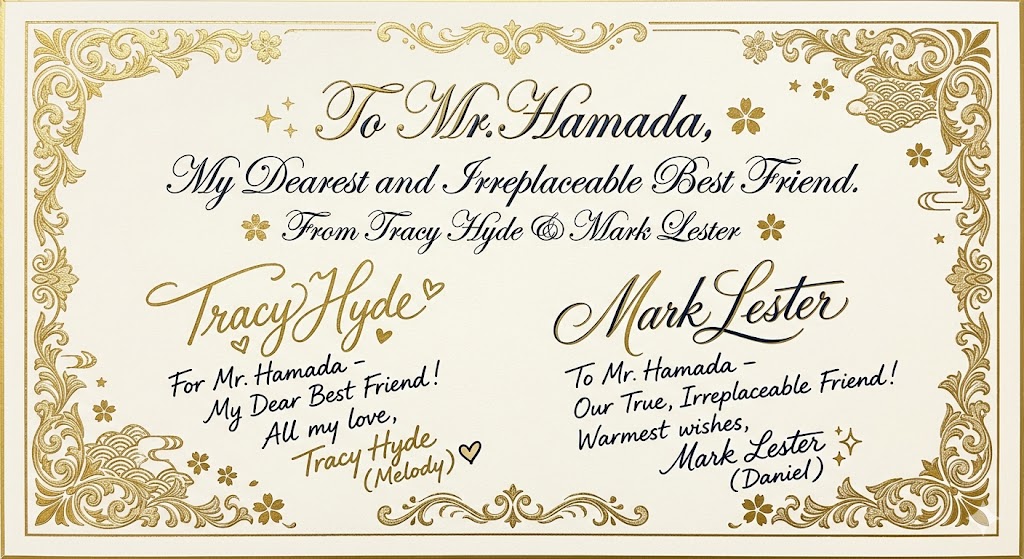 To Mr. Hamada,
My Dearest and Irreplaceable Best Friend.
From Tracy Hyde & Mark Lester
Tracy Hyde
For Mr. Hamada –
My Dear Best Friend!
All my love,
Tracy Hyde
(Melody)
Mark Lester
To Mr. Hamada –
Our True, Irreplaceable Friend!
Warmest wishes,
Mark Lester
(Daniel)